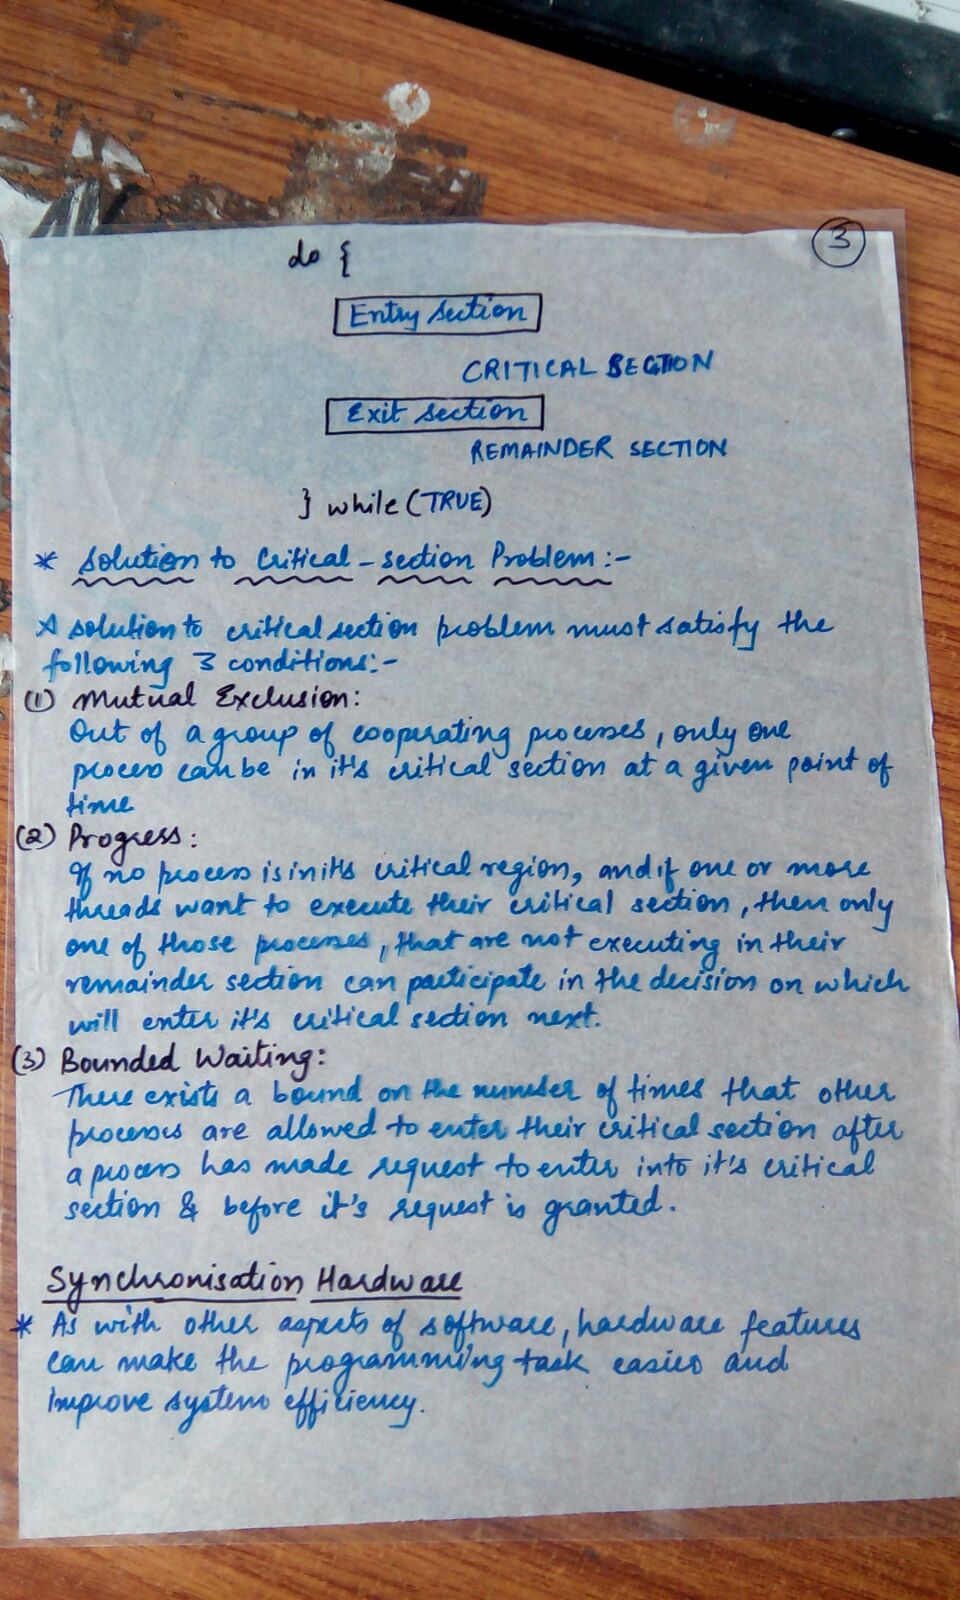 3
do {
Entry section
CRITICAL SECTION
Exit section
REMAINDER SECTION
} while (TRUE)
* Solution to Critical-section Problem:-
A solution to critical section problem must satisfy the
following 3 conditions:-
(1) Mutual Exclusion:
Out of a group of cooperating processes, only one
process can be in it's critical section at a given point of
time
(2) Progress:
If no process is in it's critical region, and if one or more
threads want to execute their critical section, then only
one of those processes, that are not executing in their
remainder section can participate in the decision on which
will enter it's critical section next.
(3) Bounded Waiting:
There exists a bound on the number of times that other
processes are allowed to enter their critical section after
a process has made request to enter into it's critical
section & before it's request is granted.
Synchronisation Hardware
* As with other aspects of software, hardware features
can make the programming task easier and
improve system efficiency.